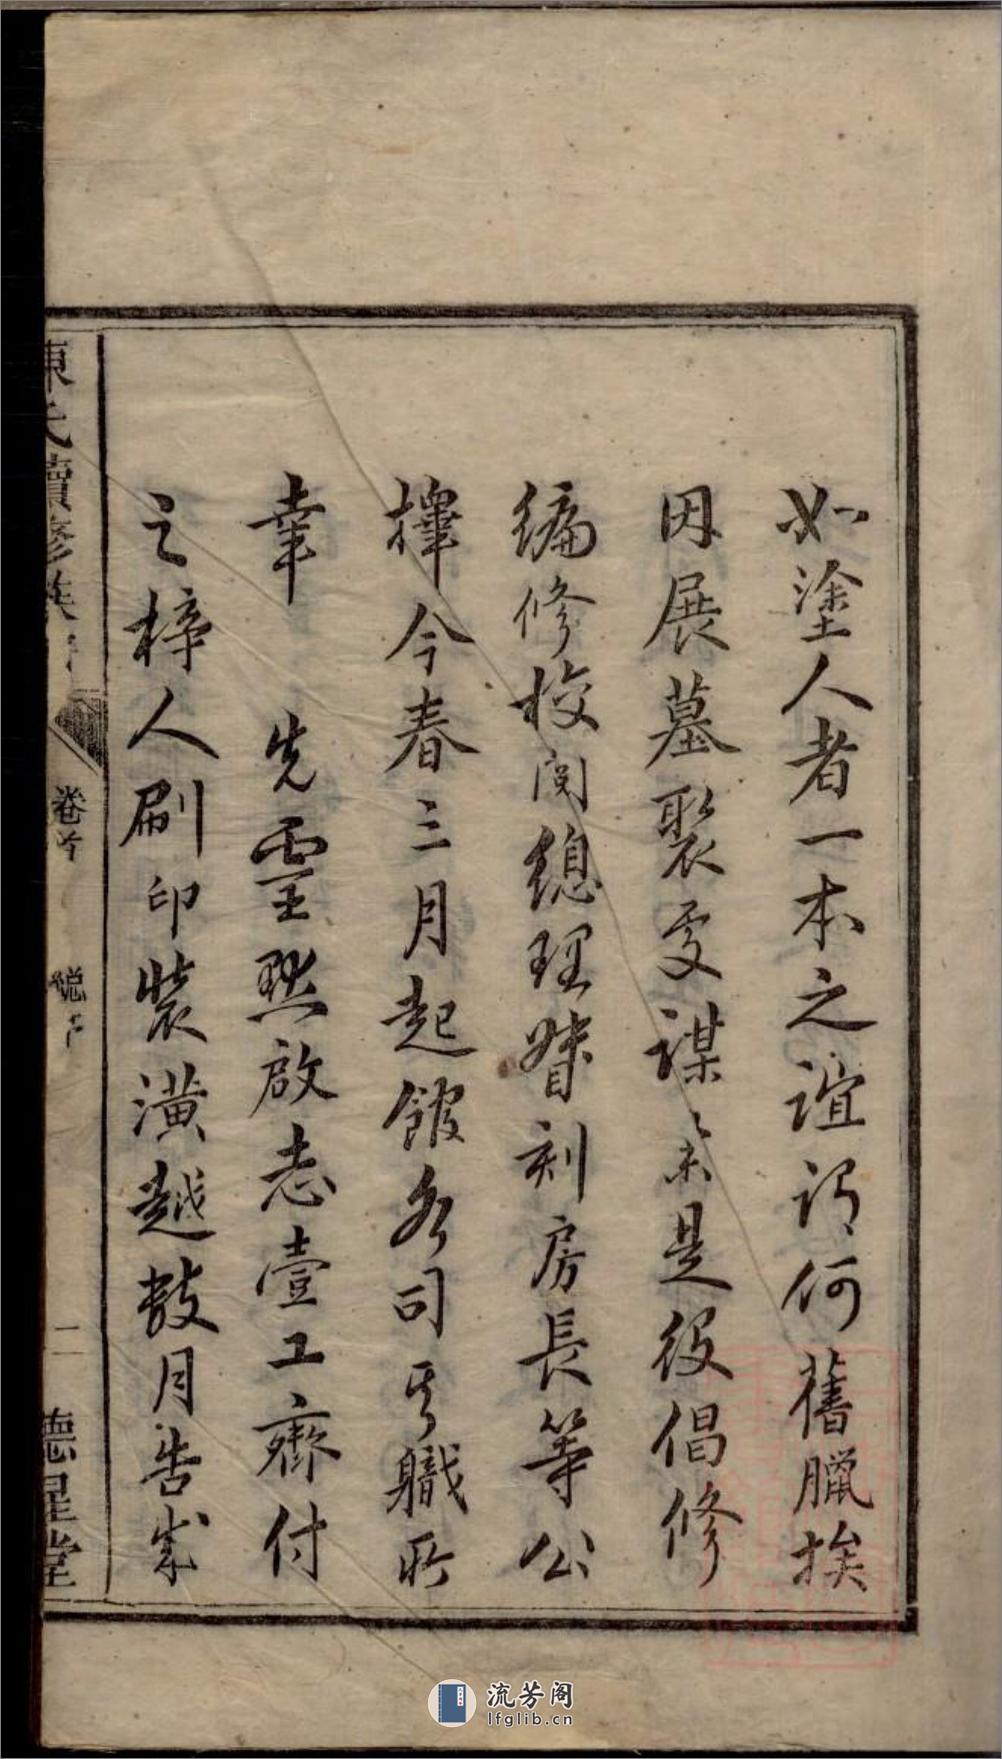 如塗人者一本之誼謂何舊臘挨
因展墓聚處謀 是役倡修
編修校閱總理督刻房長等公
擇今春三月起館各司其職所
幸 先靈默啟志壹工齊付
之梓人刷印裝潢越數月告成
陳氏續修族
卷首

二
德星堂
流芳阁
lfglib.cn